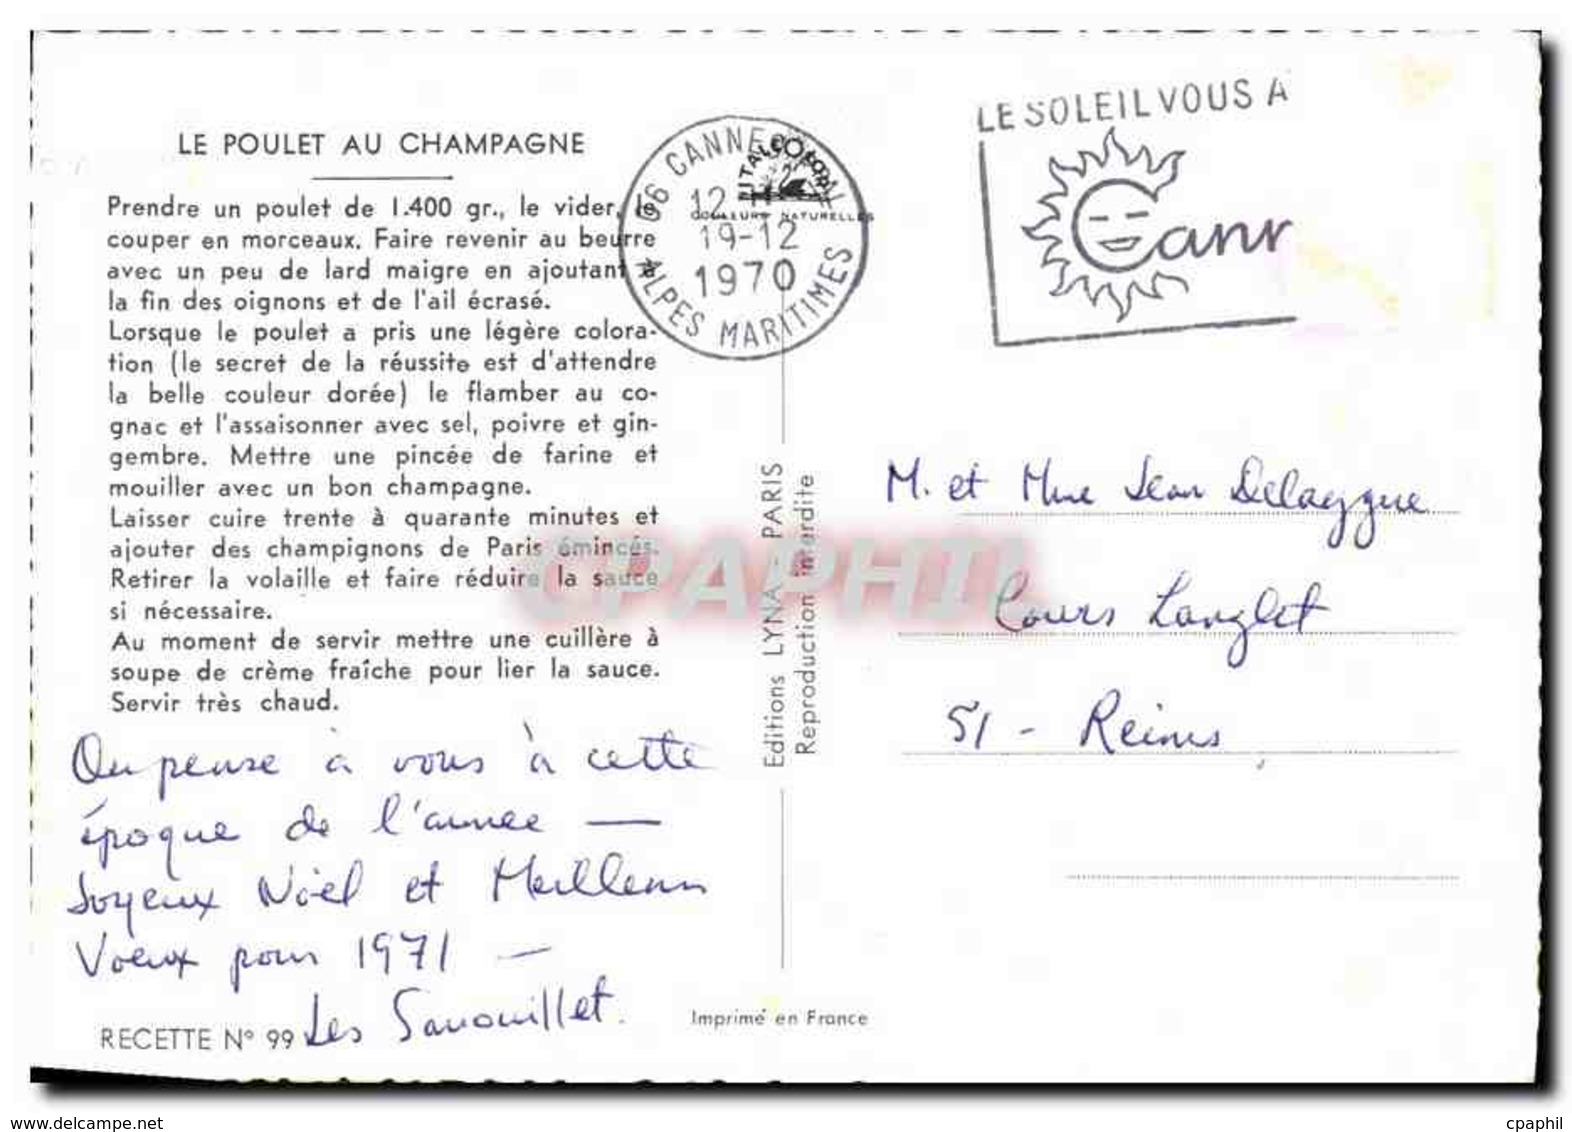 LE POULET AU CHAMPAGNE
Prendre un poulet de 1.400 gr., le vider, le
couper en morceaux. Faire revenir au beurre
avec un peu de lard maigre en ajoutant à
la fin des oignons et de l'ail écrasé.
Lorsque le poulet a pris une légère colora-
tion (le secret de la réussite est d'attendre
la belle couleur dorée) le flamber au co-
gnac et l'assaisonner avec sel, poivre et gin-
gembre. Mettre une pincée de farine et
mouiller avec un bon champagne.
Laisser cuire trente à quarante minutes et
ajouter des champignons de Paris émincés.
Retirer la volaille et faire réduire la sauce
si nécessaire.
Au moment de servir mettre une cuillère à
soupe de crème fraîche pour lier la sauce.
Servir très chaud.
On pense à vous à cette
époque de l'année —
Joyeux Noël et Meilleurs
Voeux pour 1971 —
Les Sanouillet.
RECETTE N° 99
06 CANNES
19-12
1970
ALPES MARITIMES
COULEURS NATURELLES
Editions LYNA - PARIS
Reproduction interdite
Imprimé en France
CPAPHIL
LE SOLEIL VOUS A
Cann
M. et Mme Jean
Cours Langlet
51 - Reims
www.delcampe.net
cpaphil